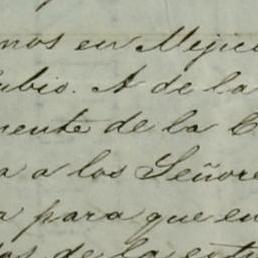 mos en Mejic
ubio. A de la
mente de la C
a a los Señore
a para que en
tos de la estr